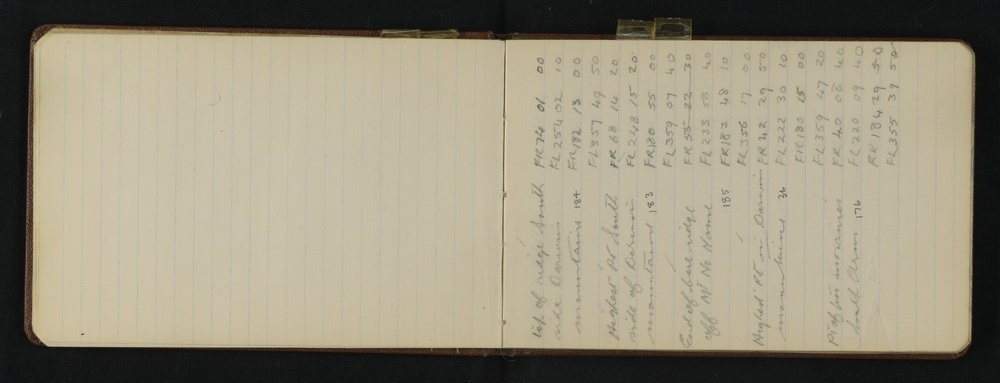 Top of ridge South FR 74 01 00
side Darwin FL 254 02 10
mountains 184 FR 182 13 00
FL 357 49 50
Highest Pt South FR 68 14 20
side of Darwin FL 248 15 20
mountains 183 FR 180 55 00
FL 359 07 40
End of bare ridge FR 53 22 30
off Mt No Name FL 233 50 40
185 FR 183 48 10
FL 356 17 00
Highest Pt in Darwin FR 42 29 50
mountains 36 FL 222 30 10
FR 180 15 00
FL 359 47 20
Pt of moraines FR 40 08 40
South Arm 176 FL 220 09 40
FR 184 29 50
FL 355 39 50